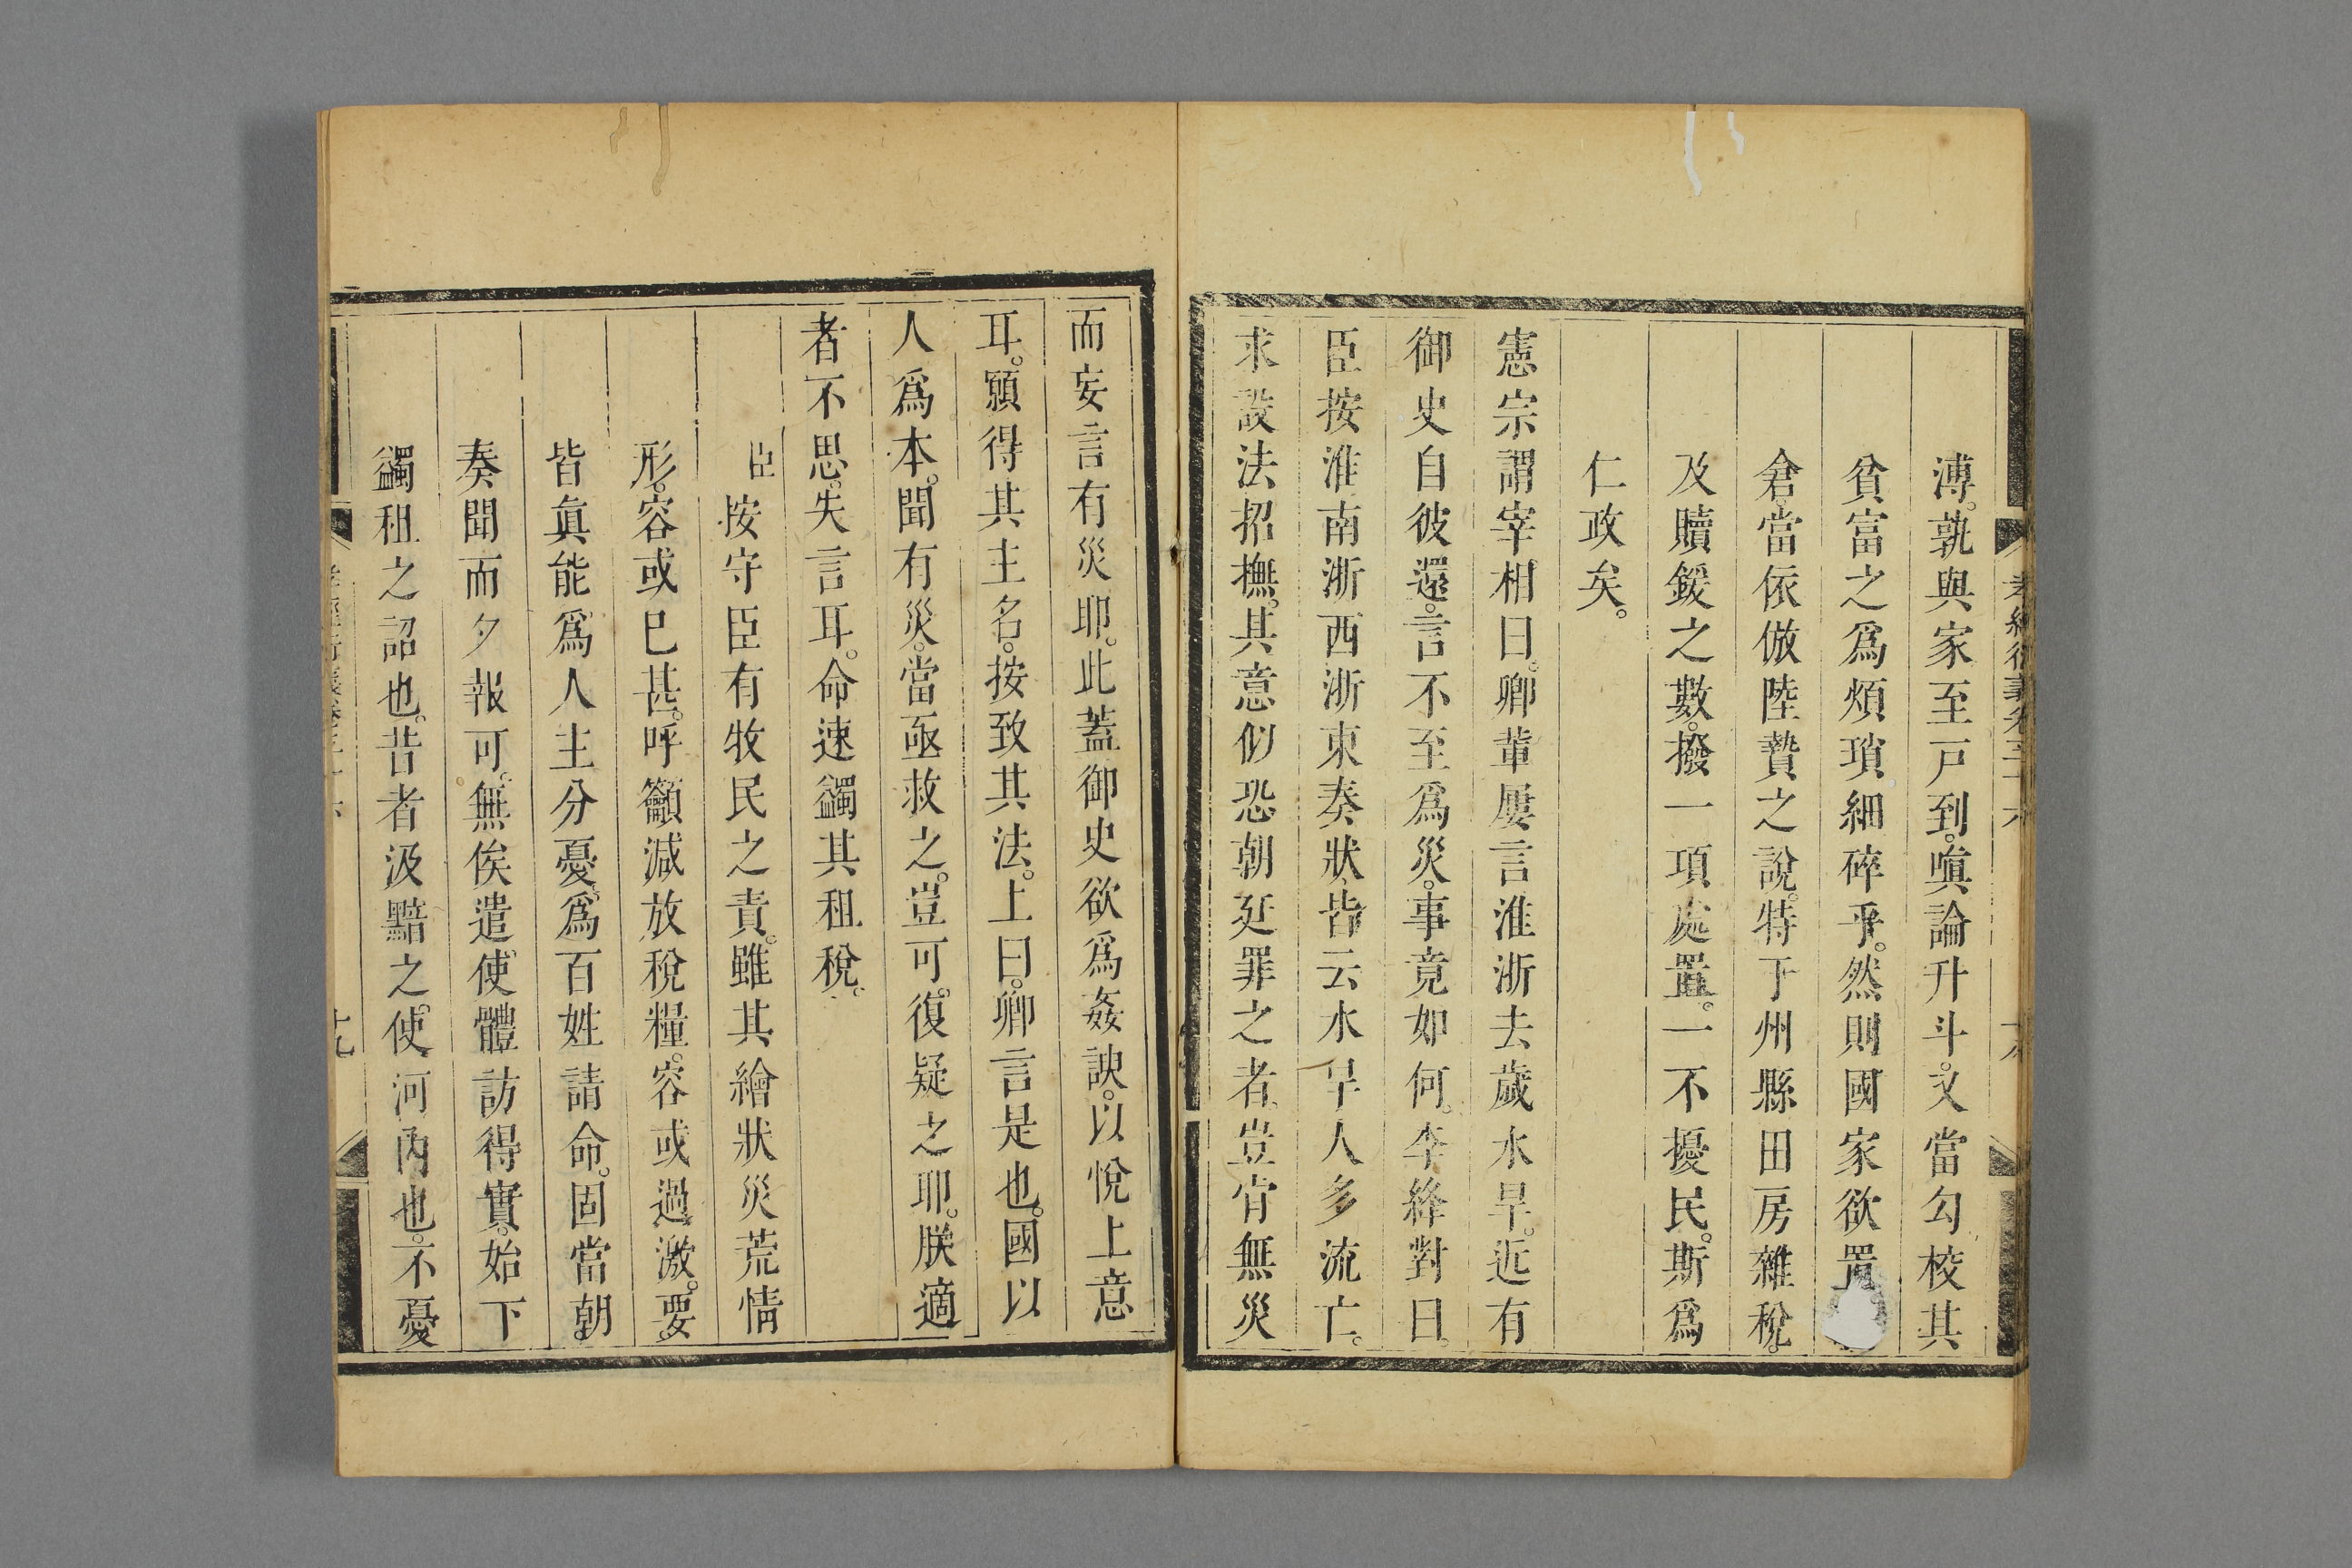 溥。孰與家至戸到。嗔論升斗。又當勾校其
貧富之爲煩瑣細碎乎。然則國家欲置
倉。當依倣陸贄之說。特于州縣田房雜稅。
及贖鍰之數。撥一項處置。一不擾民。斯爲
仁政矣。
憲宗謂宰相曰。卿輩屢言淮浙去歲水旱。近有
御史自彼還。言不至爲災。事竟如何。李絳對曰。
臣按淮南浙西浙東奏狀。皆云水旱人多流亡。
求設法招撫。其意似恐朝廷罪之者。豈肯無災
而妄言有災耶。此蓋御史欲爲姦諛。以悅上意
耳。願得其主名。按致其法。上曰。卿言是也。國以
人爲本。聞有災。當亟救之。豈可復疑之耶。朕適
者不思。失言耳。命速蠲其租稅。
臣按守臣有牧民之責。雖其繪狀災荒情
形。容或已甚。呼籲減放稅糧。容或過激。要
皆眞能爲人主分憂。爲百姓請命。固當朝
奏聞而夕報可。無俟遣使體訪得實。始下
蠲租之詔也。昔者汲黯之使河內也。不憂
十九